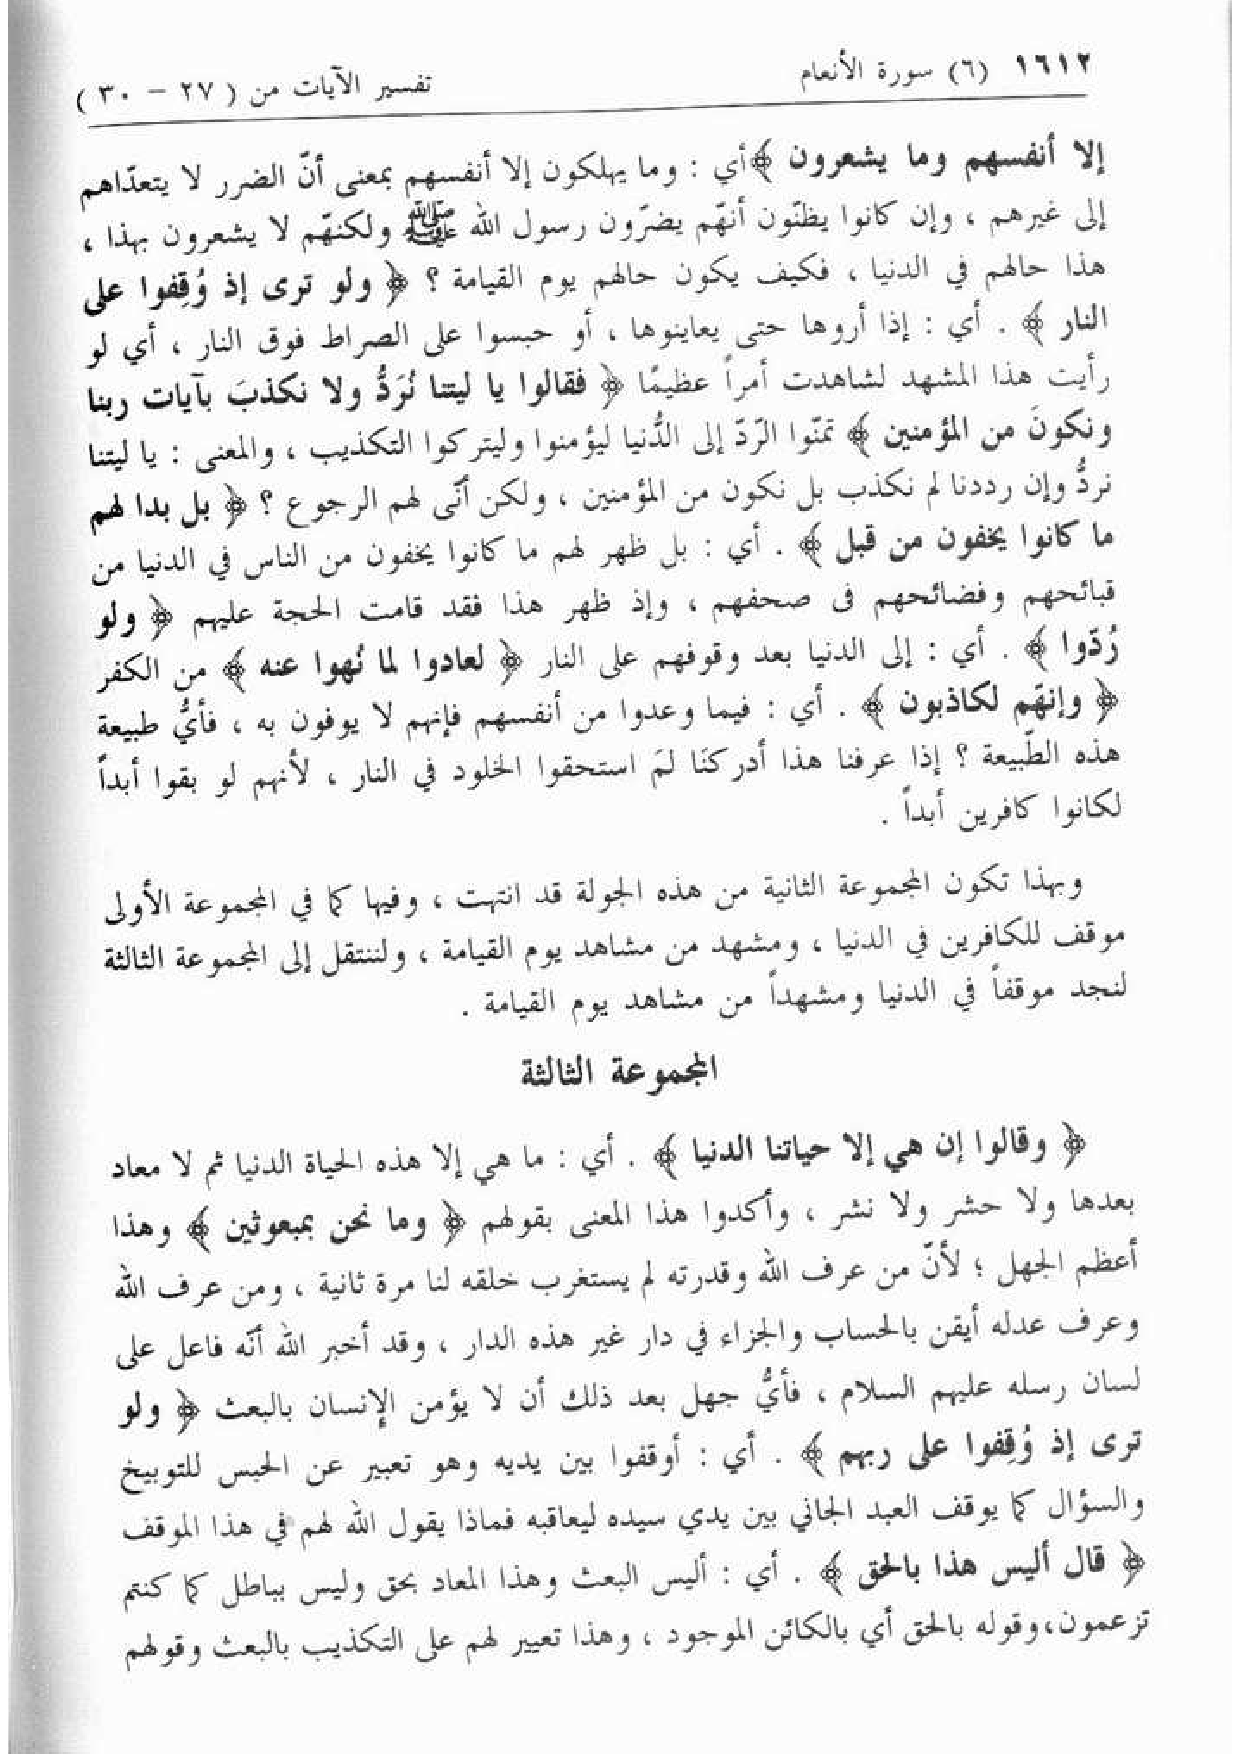 ١٦١٢ (٦) سورة الأنعام تفسير الآيات من ( ٢٧ – ٣٠ )
إلا أنفسهم وما يشعرون ﴾ أي : وما يهلكون إلا أنفسهم بمعنى أنّ الضرر لا يتعدّاهم
إلى غيرهم ، وإن كانوا يظنّون أنهّم يضرّون رسول الله ﷺ ولكنهّم لا يشعرون بهذا ،
هذا حالهم في الدنيا ، فكيف يكون حالهم يوم القيامة ؟ ﴿ ولو ترى إذ وُقِفوا على
النار ﴾ . أي : إذا أروها حتى يعاينوها ، أو حبسوا على الصراط فوق النار ، أي لو
رأيت هذا المشهد لشاهدت أمراً عظيمًا ﴿ فقالوا يا ليتنا نُرَدُّ ولا نكذبَ بآيات ربنا
ونكونَ من المؤمنين ﴾ تمنّوا الرّدّ إلى الدُّنيا ليؤمنوا وليتركوا التكذيب ، والمعنى : يا ليتنا
نردُّ وإن رددنا لم نكذب بل نكون من المؤمنين ، ولكن أنّى لهم الرجوع ؟ ﴿ بل بدا لهم
ما كانوا يخفون من قبل ﴾ . أي : بل ظهر لهم ما كانوا يخفون من الناس في الدنيا من
قبائحهم وفضائحهم فى صحفهم ، وإذ ظهر هذا فقد قامت الحجة عليهم ﴿ ولو
رُدّوا ﴾ . أي : إلى الدنيا بعد وقوفهم على النار ﴿ لعادوا لما نُهوا عنه ﴾ من الكفر
﴿ وإنهّم لكاذبون ﴾ . أي : فيما وعدوا من أنفسهم فإنهم لا يوفون به ، فأيُّ طبيعة
هذه الطّبيعة ؟ إذا عرفنا هذا أدركنَا لمَ استحقوا الخلود في النار ، لأنهم لو بقوا أبداً
لكانوا كافرين أبداً .
وبهذا تكون المجموعة الثانية من هذه الجولة قد انتهت ، وفيها كما في المجموعة الأولى
موقف للكافرين في الدنيا ، ومشهد من مشاهد يوم القيامة ، ولننتقل إلى المجموعة الثالثة
لنجد موقفاً في الدنيا ومشهداً من مشاهد يوم القيامة .
المجموعة الثالثة
﴿ وقالوا إن هي إلا حياتنا الدنيا ﴾ . أي : ما هي إلا هذه الحياة الدنيا ثم لا معاد
بعدها ولا حشر ولا نشر ، وأكدوا هذا المعنى بقولهم ﴿ وما نحن بمبعوثين ﴾ وهذا
أعظم الجهل ؛ لأنّ من عرف الله وقدرته لم يستغرب خلقه لنا مرة ثانية ، ومن عرف الله
وعرف عدله أيقن بالحساب والجزاء في دار غير هذه الدار ، وقد أخبر الله أنّه فاعل على
لسان رسله عليهم السلام ، فأيُّ جهل بعد ذلك أن لا يؤمن الإنسان بالبعث ﴿ ولو
ترى إذ وُقِفوا على ربهم ﴾ . أي : أوقفوا بين يديه وهو تعبير عن الحبس للتوبيخ
والسؤال كما يوقف العبد الجاني بين يدي سيده ليعاقبه فماذا يقول الله لهم في هذا الموقف
﴿ قال أليس هذا بالحق ﴾ . أي : أليس البعث وهذا المعاد بحق وليس بباطل كما كنتم
تزعمون، وقوله بالحق أي بالكائن الموجود ، وهذا تعيير لهم على التكذيب بالبعث وقولهم